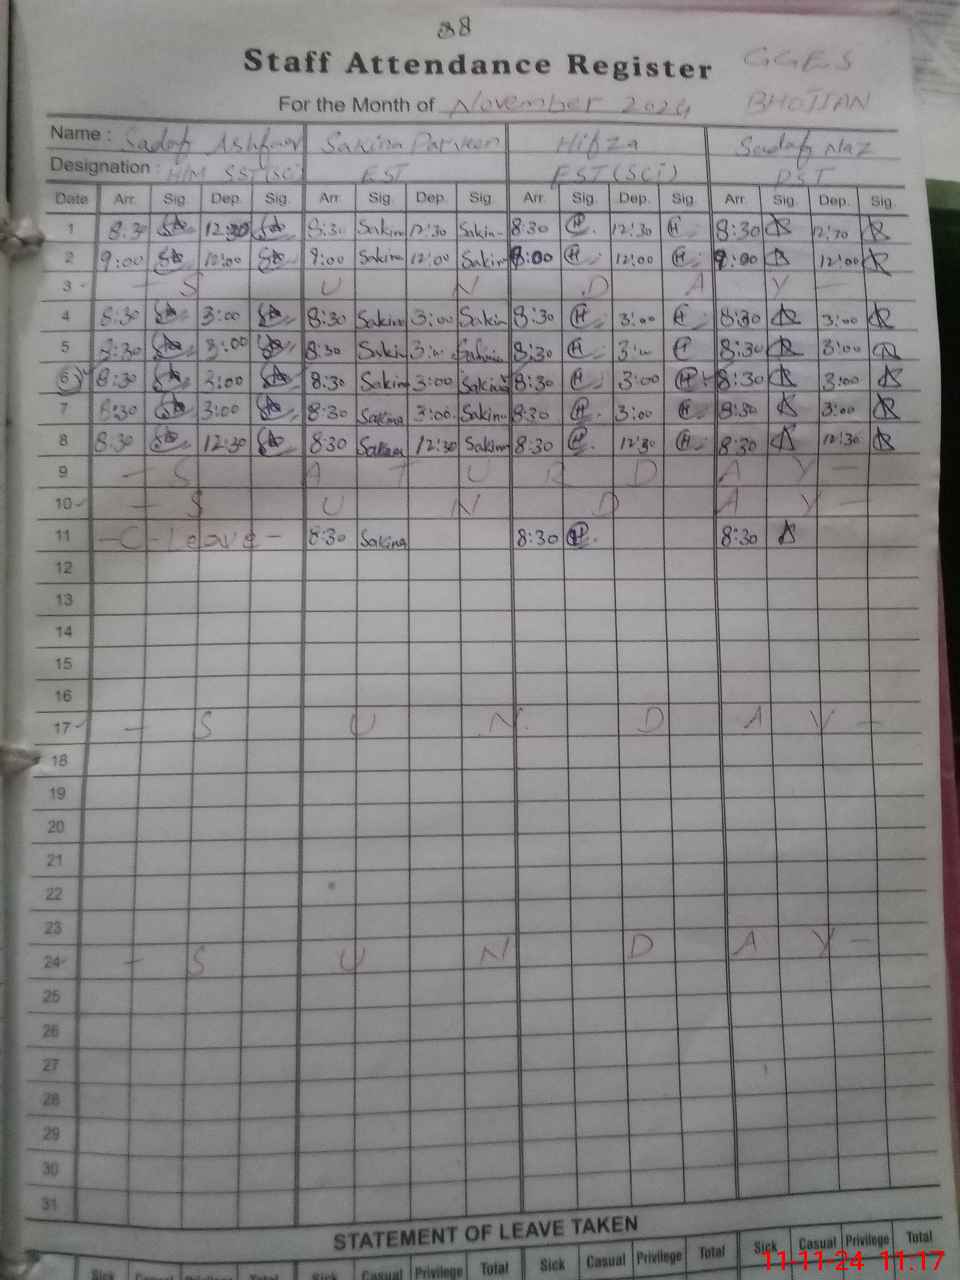 38
Staff Attendance Register GGES
For the Month of November 2024 BHOJJAN
Name : Sadaf Ashfaq Sakina Parveen Hifza Sadaf Naz
Designation : H/M SST(Sci) EST EST(Sci) PST
Date Arr. Sig. Dep. Sig. Arr. Sig. Dep. Sig. Arr. Sig. Dep. Sig. Arr. Sig. Dep. Sig.
1 8:30 12:30 8:30 Sakina 12:30 Sakina 8:30 H 12:30 H 8:30 12:30
2 9:00 12:00 9:00 Sakina 12:00 Sakina 8:00 H 12:00 H 9:00 12:00
3 - S U N D A Y -
4 8:30 3:00 8:30 Sakina 3:00 Sakina 8:30 H 3:00 H 8:30 3:00
5 8:30 3:00 8:30 Sakina 3:00 Sakina 8:30 H 3:00 H 8:30 3:00
6 8:30 3:00 8:30 Sakina 3:00 Sakina 8:30 H 3:00 H 8:30 3:00
7 8:30 3:00 8:30 Sakina 3:00 Sakina 8:30 H 3:00 H 8:30 3:00
8 8:30 12:30 8:30 Sakina 12:30 Sakina 8:30 H 12:30 H 8:30 12:30
9 - S A T U R D A Y -
10 - S U N D A Y -
11 - C - Leave - 8:30 Sakina 8:30 H 8:30
12
13
14
15
16
17 - S U N D A Y -
18
19
20
21
22
23
24 - S U N D A Y -
25
26
27
28
29
30
31
STATEMENT OF LEAVE TAKEN
Sick Casual Privilege Total Sick Casual Privilege Total Sick Casual Privilege Total Sick Casual Privilege Total
11-11-24 11:17